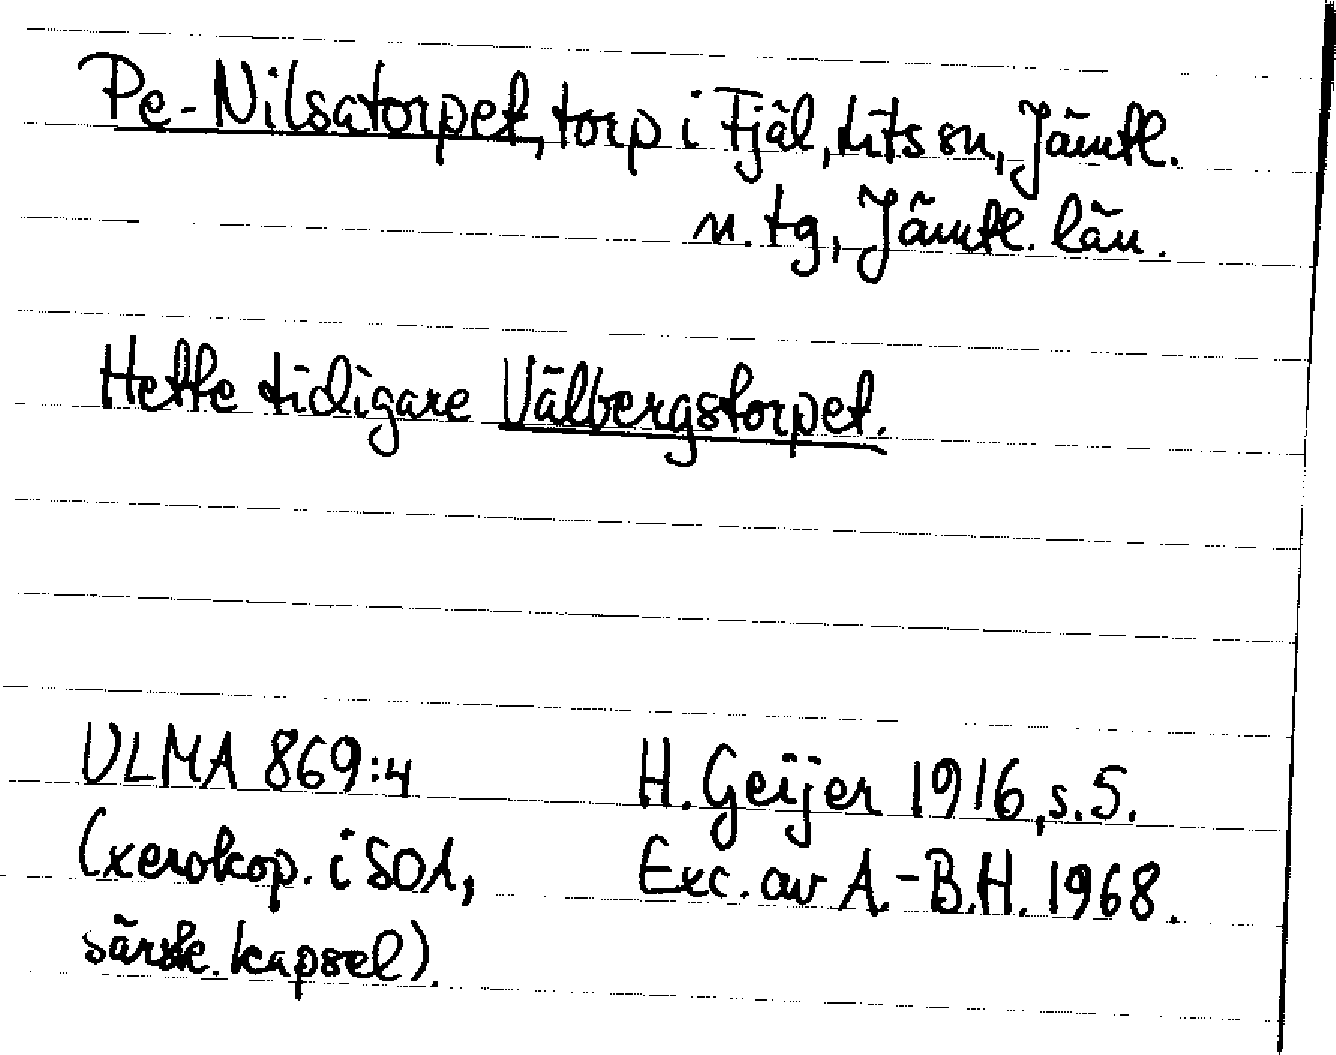 Pe-Nilsatorpet, torp i Fjäl, Lits sn, Jämtl.
n. tg, Jämtl. län.
Hette tidigare Välbergstorpet.
ULMA 869:4
(xerokop. i SOA,
särsk. kapsel).
H. Geijer 1916, s. 5.
Exc. av A.-B.H. 1968.